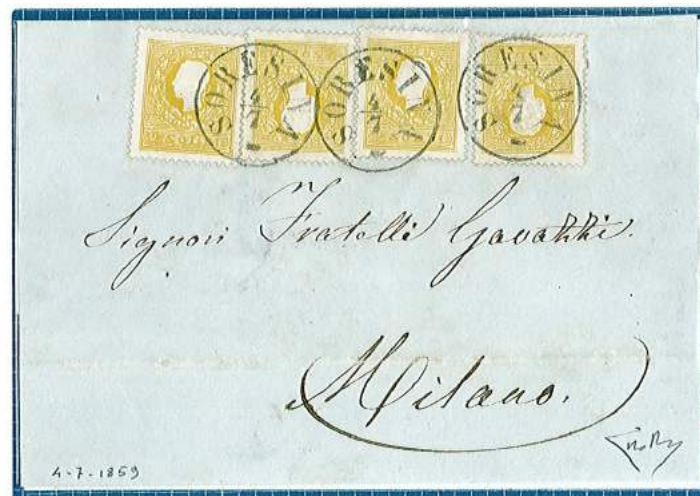 SORESINA
4/7
SORESINA
4/7
SORESINA
4/7
Signori Fratelli Gavazzi.
Milano.
4-7-1859